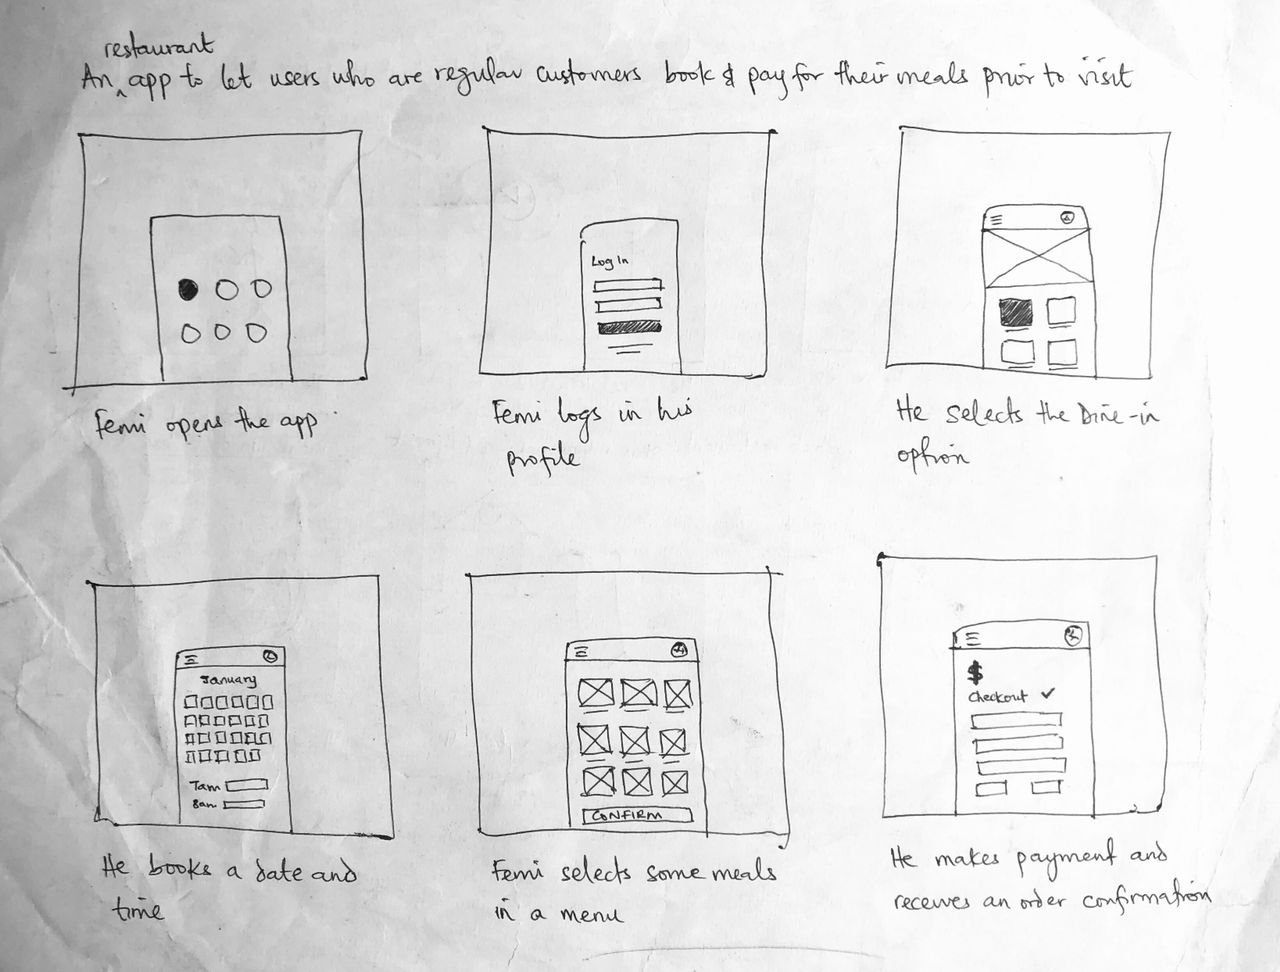 restaurant
An ^ app to let users who are regular customers book & pay for their meals prior to visit
Log In
Femi opens the app
Femi logs in his
profile
He selects the Dine-in
option
January
7am
8am
CONFIRM
$
Checkout ✓
He books a date and
time
Femi selects some meals
in a menu
He makes payment and
receives an order confirmation